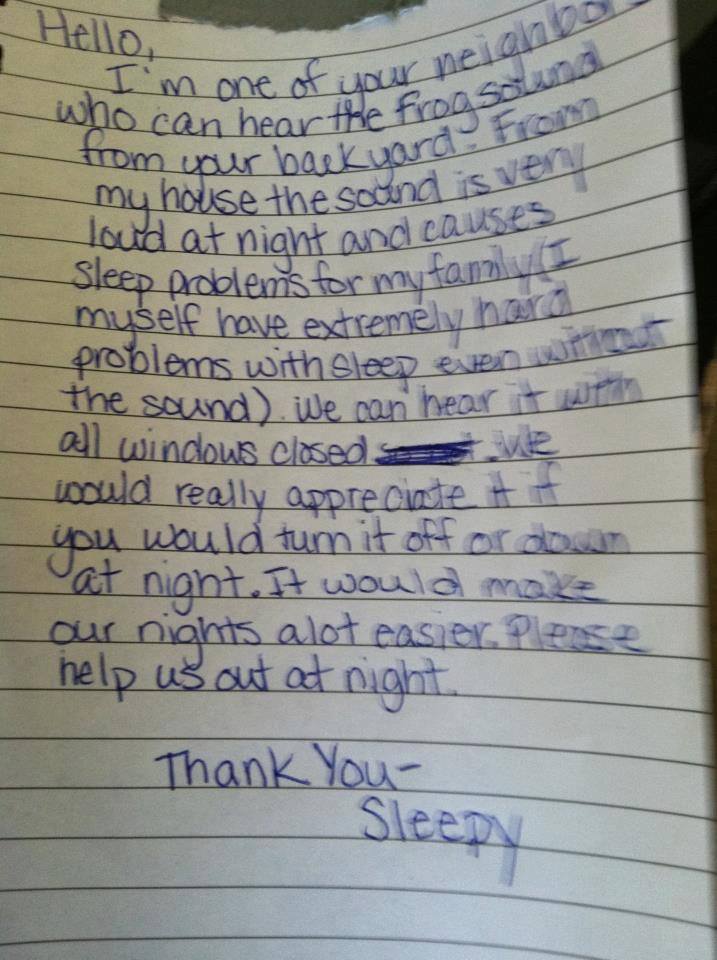 Hello,
I'm one of your neighbors
who can hear the frog sound
from your backyard. From
my house the sound is very
loud at night and causes
sleep problems for my family (I
myself have extremely hard
problems with sleep even without
the sound). We can hear it with
all windows closed . We
would really appreciate it if
you would turn it off or down
at night. It would make
our nights alot easier. Please
help us out at night.
Thank You-
Sleepy